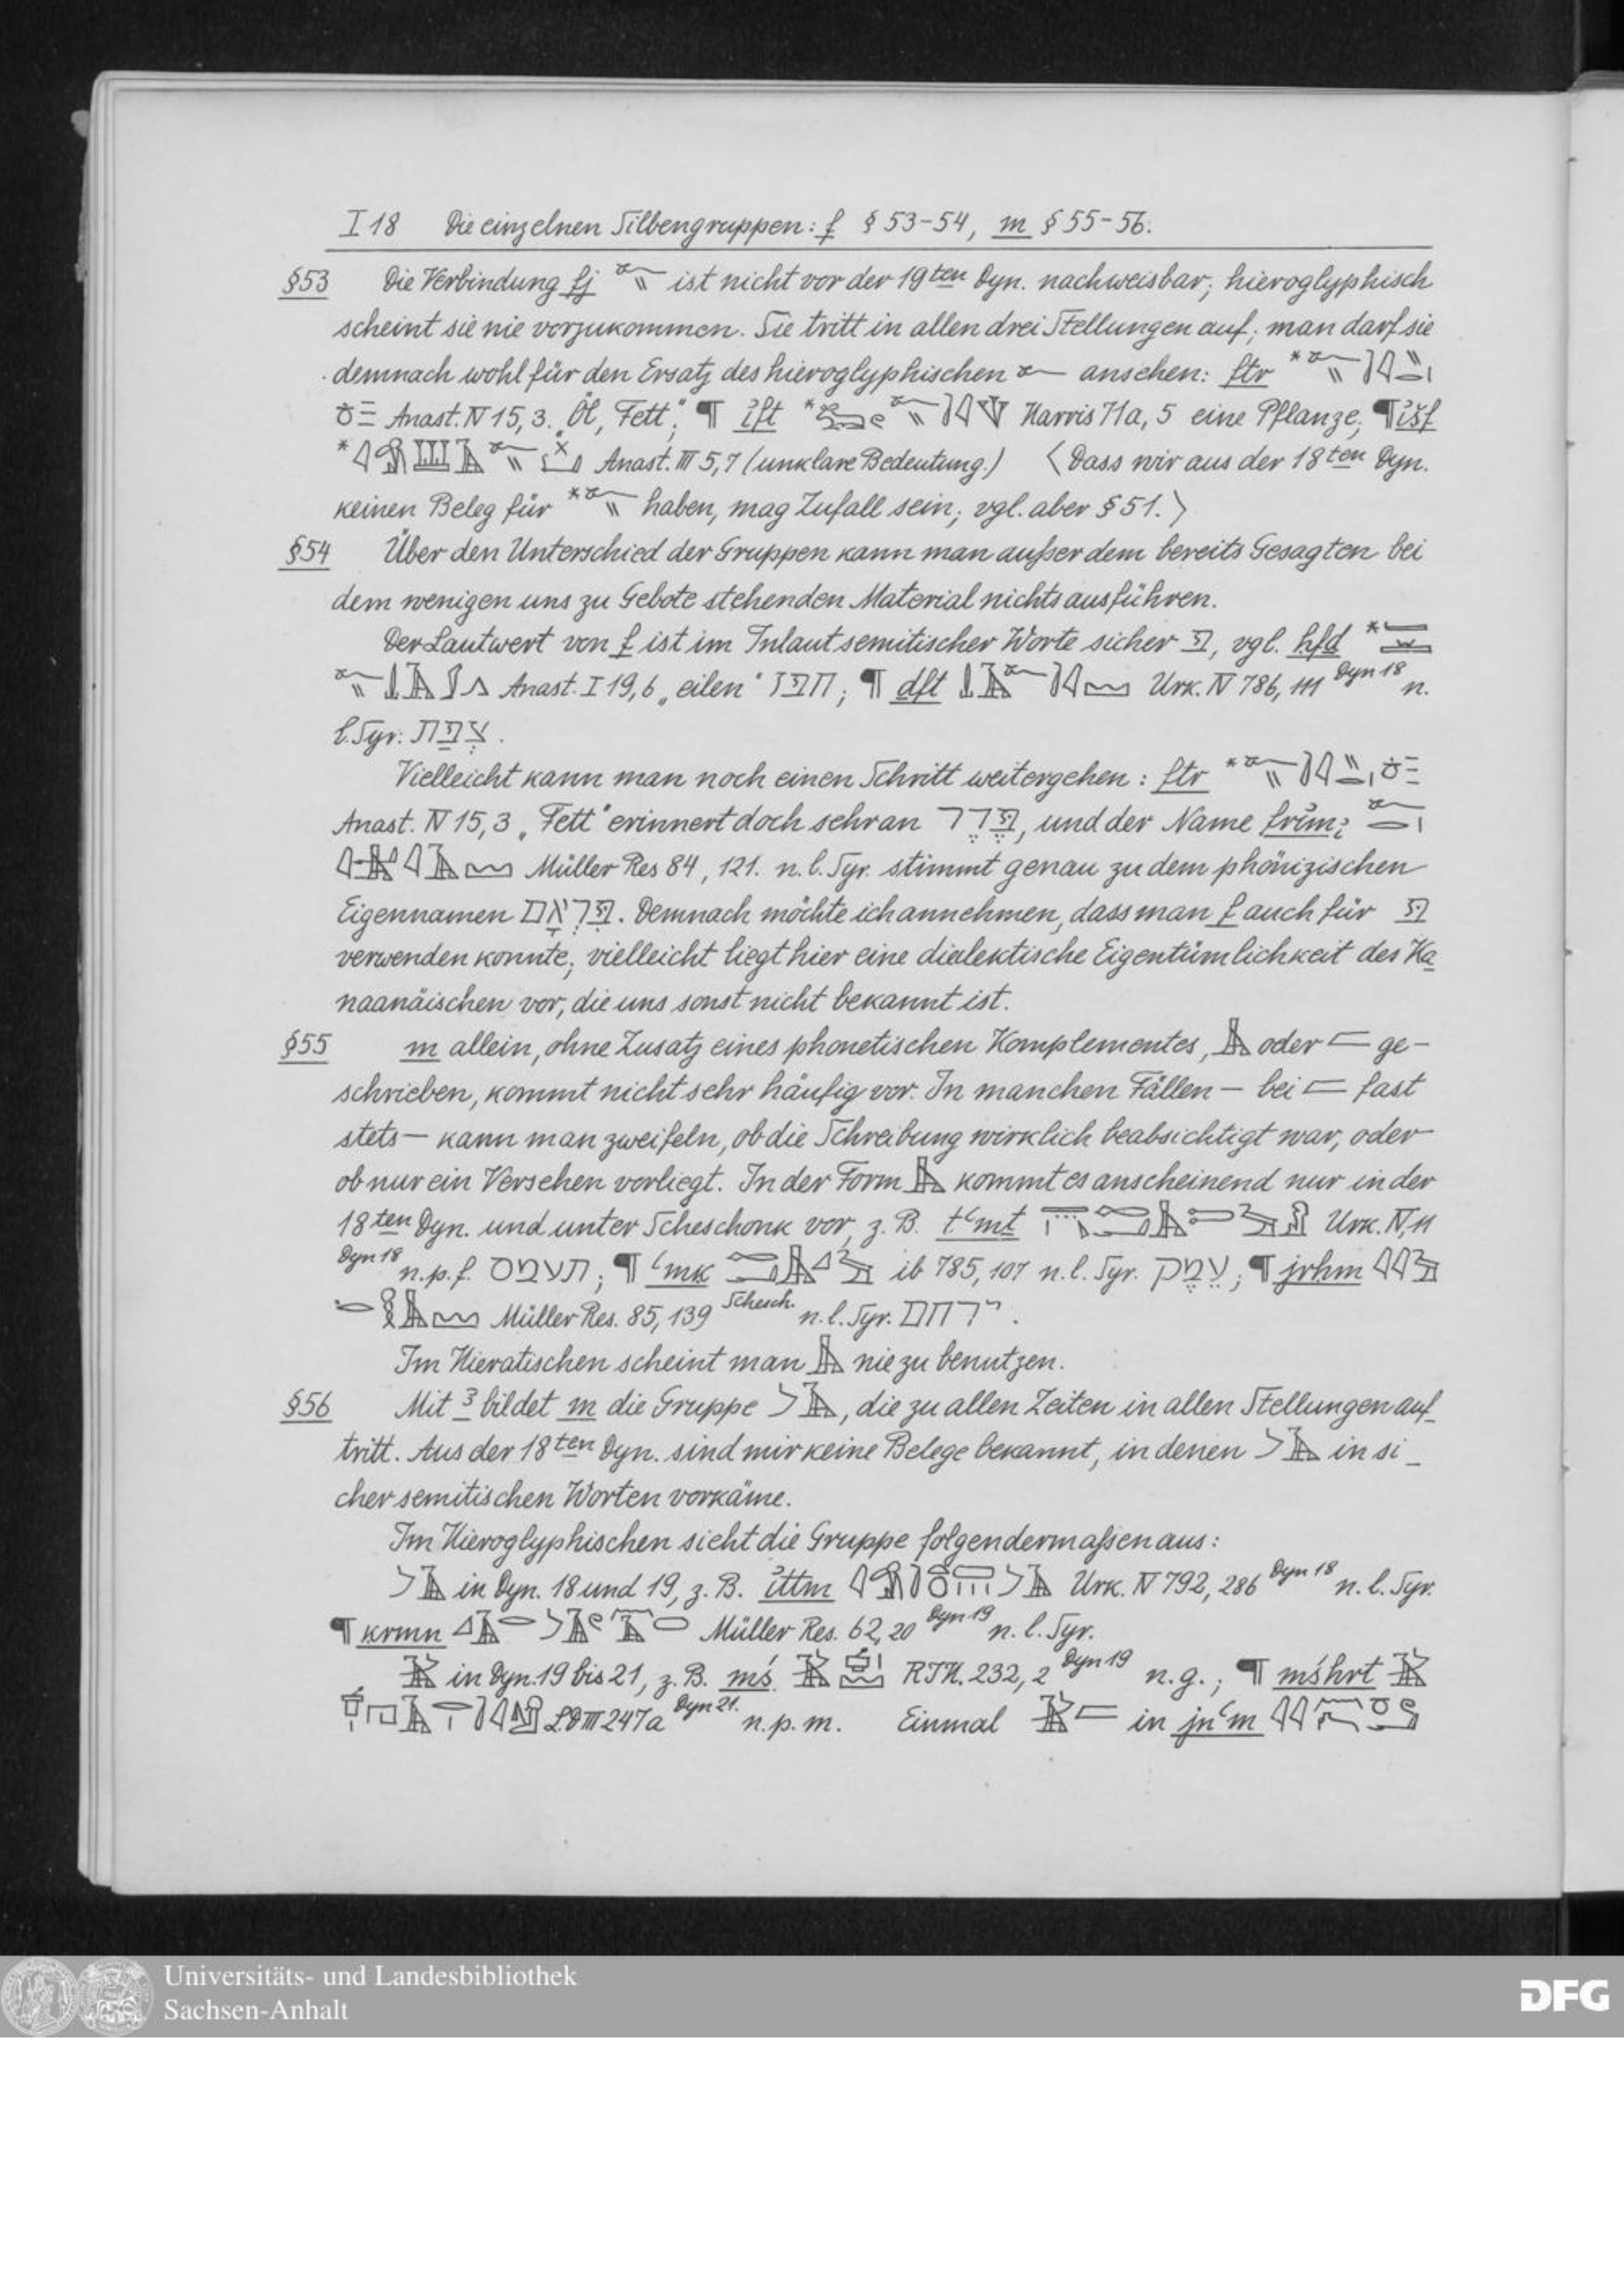 I 18 Die einzelnen Silbengruppen: f § 53-54, m § 55-56.
§53 Die Verbindung fj ist nicht vor der 19ten Dyn. nachweisbar; hieroglyphisch
scheint sie nie vorzukommen. Sie tritt in allen drei Stellungen auf; man darf sie
demnach wohl für den Ersatz des hieroglyphischen ansehen: ftr *
Anast. IV 15, 3. „Öl, Fett"; ¶ ift * Harris 71a, 5 eine Pflanze; ¶ išf
* Anast. III 5, 7 (unklare Bedeutung.) 〈Dass wir aus der 18ten Dyn.
keinen Beleg für * haben, mag Zufall sein; vgl. aber § 51.〉
§54 Über den Unterschied der Gruppen kann man außer dem bereits Gesagten bei
dem wenigen uns zu Gebote stehenden Material nichts ausführen.
Der Lautwert von f ist im Inlaut semitischer Worte sicher פ, vgl. hfd *
Anast. I 19, 6 „eilen" חפז; ¶ dft Urk. IV 786, 111 Dyn 18 n.
l. Syr. צפת.
Vielleicht kann man noch einen Schritt weitergehen: ftr *
Anast. IV 15, 3 „Fett" erinnert doch sehr an פדר, und der Name
Müller Res 84, 121. n. l. Syr. stimmt genau zu dem phönizischen
Eigennamen פראם. Demnach möchte ich annehmen, dass man f auch für פּ
verwenden konnte; vielleicht liegt hier eine dialektische Eigentümlichkeit des Ka
naanäischen vor, die uns sonst nicht bekannt ist.
§55 m allein, ohne Zusatz eines phonetischen Komplementes, oder ge-
schrieben, kommt nicht sehr häufig vor. In manchen Fällen – bei fast
stets – kann man zweifeln, ob die Schreibung wirklich beabsichtigt war, oder
ob nur ein Versehen vorliegt. In der Form kommt es anscheinend nur in der
18ten Dyn. und unter Scheschonk vor, z. B. tʿmt Urk. IV, 11
Dyn 18 n. p. f. תעמס; ¶ ʿmk ib 785, 107 n. l. Syr. עמק; ¶ jrhm
Müller Res. 85, 139 Schesch. n. l. Syr. ירחם.
Im Hieratischen scheint man nie zu benutzen.
§56 Mit ꜣ bildet m die Gruppe , die zu allen Zeiten in allen Stellungen auf-
tritt. Aus der 18ten Dyn. sind mir keine Belege bekannt, in denen in si-
cher semitischen Worten vorkäme.
Im Hieroglyphischen sieht die Gruppe folgendermaßen aus:
in Dyn. 18 und 19, z. B. ittm Urk. IV 792, 286 Dyn 18 n. l. Syr.
¶ krmn Müller Res. 62, 20 Dyn 19 n. l. Syr.
in Dyn. 19 bis 21, z. B. mś RIH. 232, 2 Dyn 19 n. g.; ¶ mśhrt
LD III 247a Dyn 21. n. p. m. Einmal in jnʿm
Universitäts- und Landesbibliothek
Sachsen-Anhalt
DFG